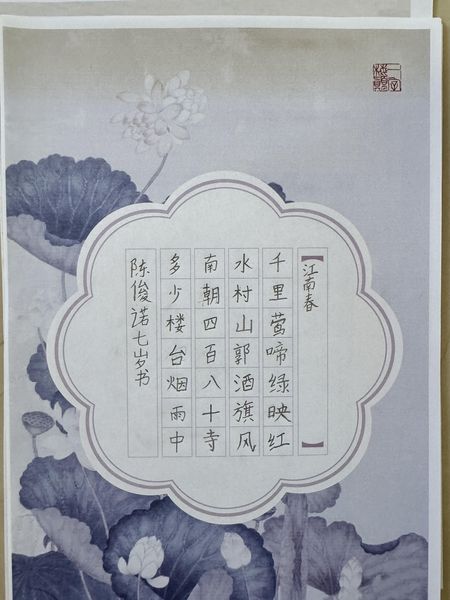 【江南春】
千里莺啼绿映红
水村山郭酒旗风
南朝四百八十寺
多少楼台烟雨中
陈俊诺七岁书